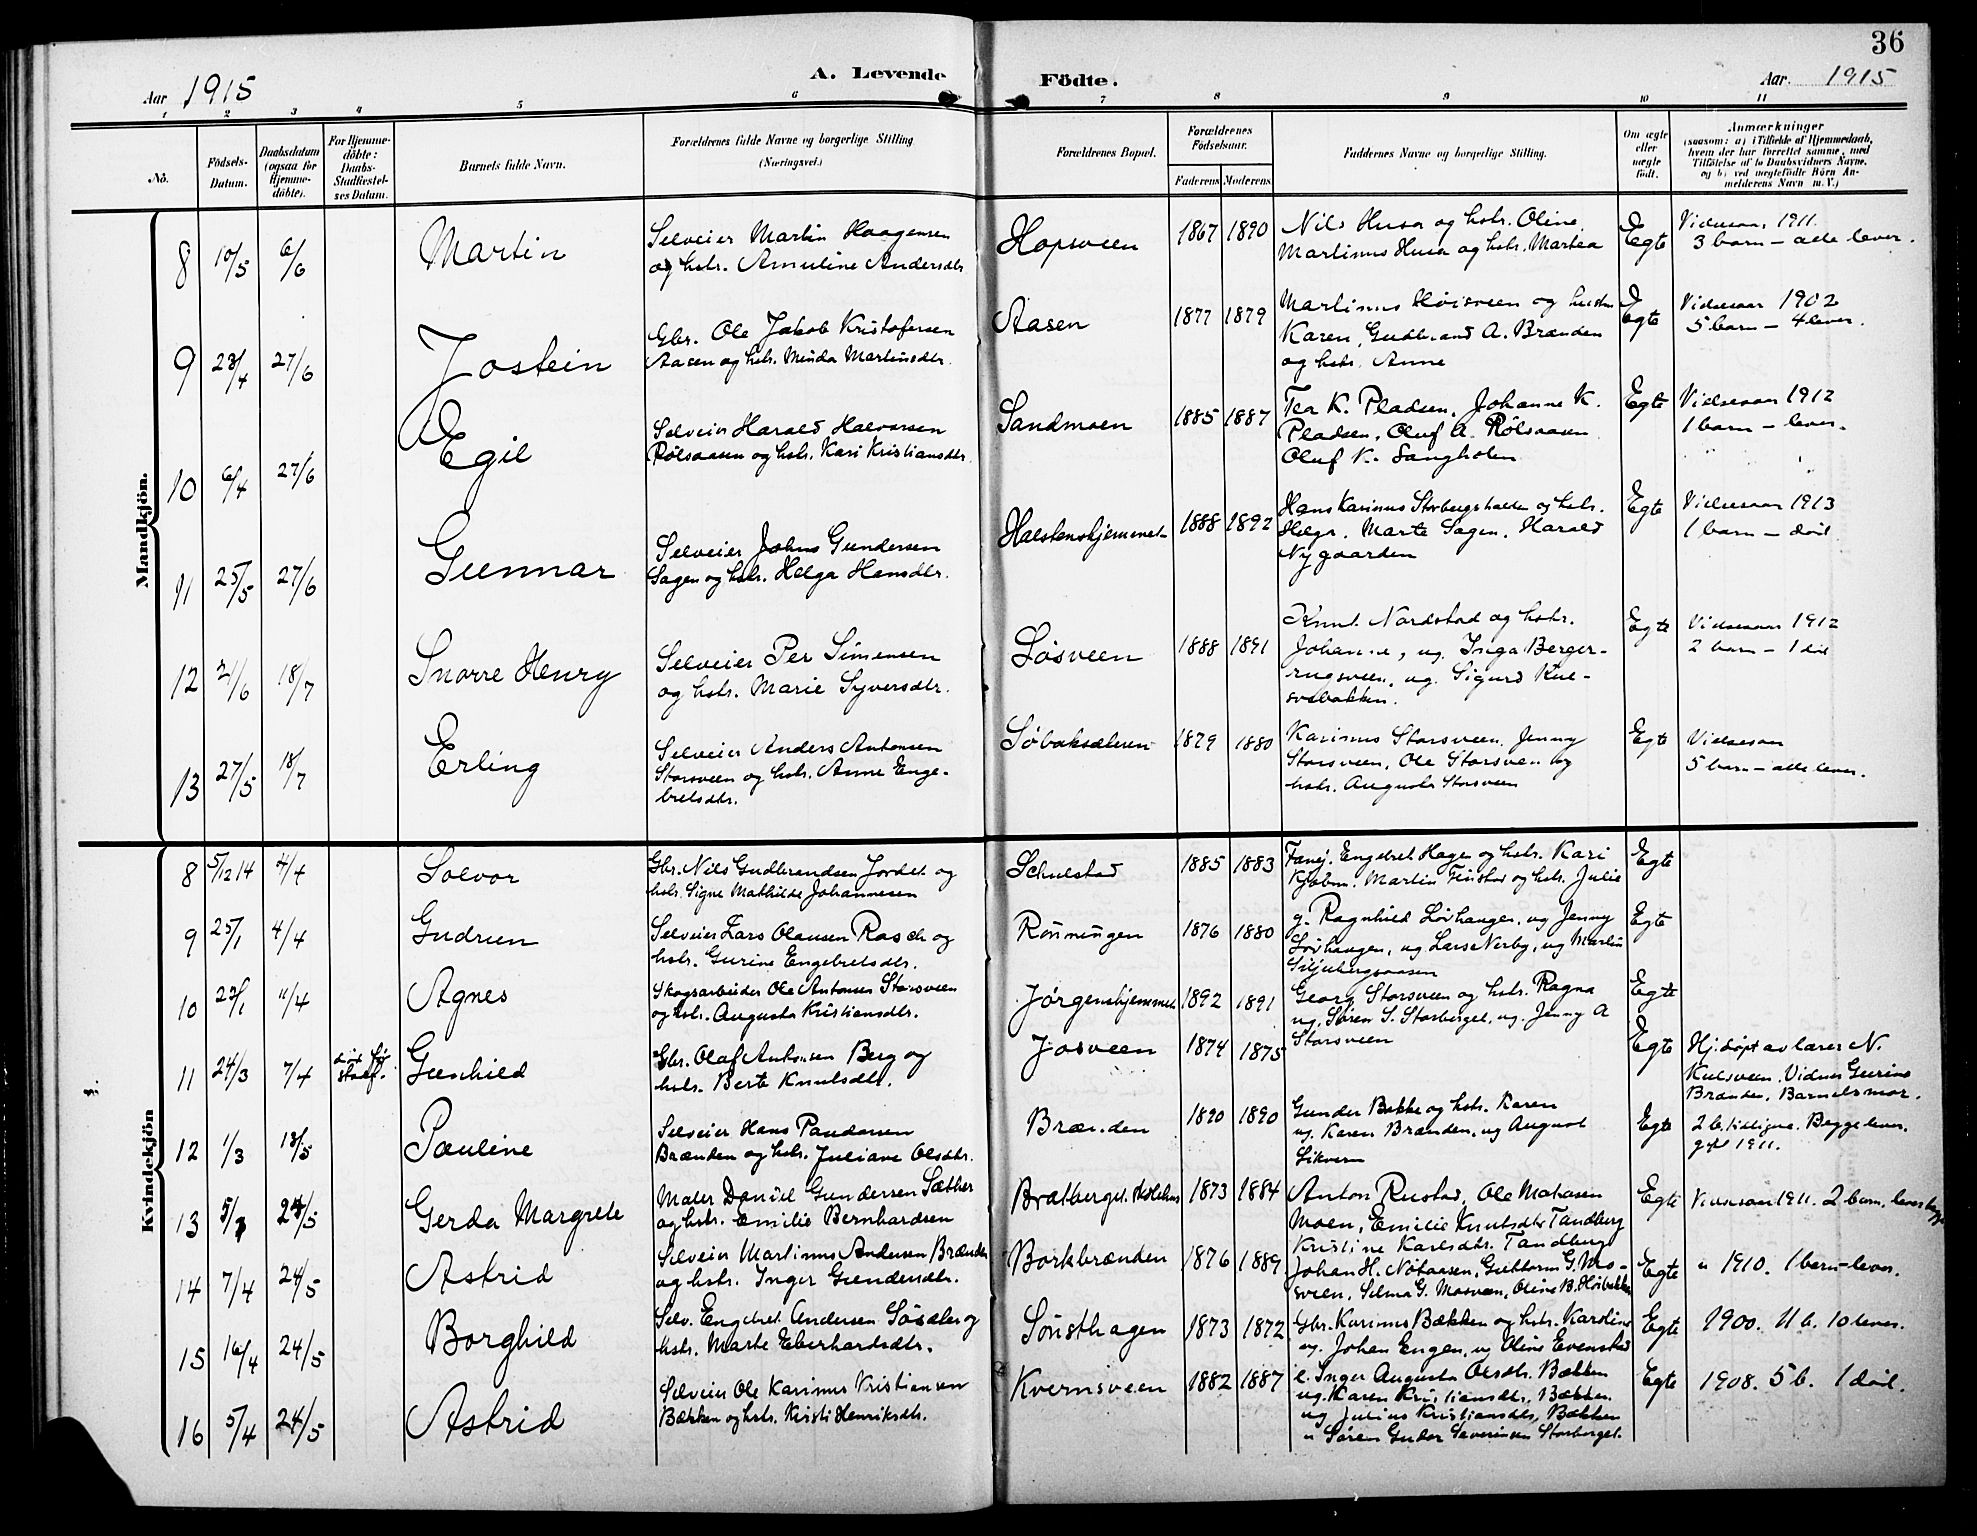 36
Aar 1915
A. Levende Födte.
Aar. 1915
1 2 3 4 5 6 7 8 9 10 11
No.
Födsels-Datum.
Daabsdatum (ogsaa for Hjemme-döbte).
For Hjemme-döbte: Daabs-Stadfæstel-ses Datum.
Barnets fulde Navn.
Forældrenes fulde Navne og borgerlige Stilling (Næringsvei.)
Forældrenes Bopæl.
Forældrenes Födselsaar.
Faderens Moderens
Faddernes Navne og borgerlige Stilling.
Om ægte eller uægte født.
Anmærkninger
(saasom: a) i Tilfælde af Hjemmedaab,
hvem der har forrettet samme, med
Tilföielse af to Daabsvidners Navne,
og b) ved uægtefödte Börn An-
melderens Navn m. V.)
Mandkjön.
8 10/5 6/6 Martin Selveier Martin Haagensen Hopsveen 1867 1890 Nils Husa og hstr. Oline Egte Vielsesaar 1911.
og hstr. Amuline Andersdtr. Martinus Husa og hstr. Martea 3 barn – alle lever.
9 28/4 27/6 Jostein Gbr. Ole Jakob Kristofersen Aasen 1877 1879 Martinus Høisveen og hustru Egte Vielsesaar 1902
Aasen og hstr. Minda Martinsdtr. Karen, Gudbrand A. Brænden 5 barn – 4 lever.
og hstr. Anne
10 6/4 27/6 Egil Selveier Harald Halvorsen Sandmoen 1885 1887 Tea K. Pladsen, Johanne K. Egte Vielsesaar 1912
Rølsaasen og hstr. Kari Kristiansdtr. Pladsen, Oluf A. Rølsaasen 1 barn – lever.
Oluf K. Sangholen
11 25/5 27/6 Gunnar Selveier Johns Gundersen Halstenshjemmet 1888 1892 Hans Karinus Storbergshalden og hstr. Egte Vielsesaar 1913
Sagen og hstr. Helga Hansdtr. Helga, Marte Sagen, Harald 1 barn – død
Nygaarden
12 21/6 18/7 Snorre Henry Selveier Per Simensen Løsveen 1888 1891 Knut Nordstad og hstr. Egte Vielsesaar 1912
og hstr. Marie Syversdtr. Johanne, ug. Inga Berger- 2 barn – 1 død
rugsveen, ug. Sigurd Kul-
svebakken.
13 27/5 18/7 Erling Selveier Anders Antonsen Søbaksæteren 1879 1880 Karinus Storsveen, Jenny Egte Vielsesaar
Storsveen og hstr. Anne Enge- Storsveen, Ole Storsveen og 5 barn – alle lever.
bretsdtr. hstr. Augusta Storsveen
Kvindekjön
8 5/12 14 4/4 Solvor Gbr. Nils Gudbrandsen Jordet og Schulstad 1885 1883 Engebret Hagen og hstr. Kari Egte
hstr. Signe Mathilde Johannesen Martin Finstad og hstr. Julie
9 25/1 4/4 Gudrun Selveier Lars Olausen Rasch og Rønningen 1876 1880 g. Ragnhild Løvhaugen, ug Jenny Egte
hstr. Gurine Engebretsdtr. Løvhaugen, ug Lars Nerby, ug Martin
Siljubergsaasen
10 23/1 11/4 Agnes Skogsarbeider Ole Antonsen Storsveen Jørgenshjemmet 1892 1891 Georg Storsveen og hstr. Ragna Egte
og hstr. Augusta Kristiansdtr. ug. Søren S. Storberget, ug. Jenny A
Storsveen
11 24/3 7/4 død før stadf. Gunhild Gbr. Olaf Antonsen Berg og Josveen 1874 1875 Egte Hj.døpt av lærer N.
hstr. Berte Knutsdtr. Kulsveen. Vidner Gurine
Brænden, Barnets mor.
12 1/3 13/5 Pauline Selveier Hans Paudersen Brænden 1890 1890 Gunder Bakke og hstr. Karen Egte 2 b. tidligere. Begge lever.
Brænden og hstr. Juliane Olsdtr. ug. Karen Brænden, ug August gift 1911.
Sikvern
13 5/3 24/5 Gerda Margrete Maler Daniel Gundersen Sæther Bratberget 1873 1884 Anton Rustad, Ole Mathisen Egte Vielsesaar 1911. 2 barn, lever begge
og hstr. Emilie Bernhardsen Moen, Emilie Knutsdtr Tandberg
Kristine Karlsdtr. Tandberg
14 7/4 24/5 Astrid Selveier Martinus Andersen Brænden Borkbrænden 1876 1889 Johan H. Nøtaasen, Guttorm G. Mo- Egte " 1910. 1 barn – lever.
og hstr. Inger Gundersdtr. sveen, Selma G. Mosveen, Oline B. Høibakken
15 16/4 24/5 Borghild Selv. Engebret Andersen Sødal og Sønsthagen 1873 1872 Gbr. Karinus Bækken og hstr. Karoline Egte 1900. 11 b. 10 lever.
hstr. Marte Eberhardsdtr. ug. Johan Engen, ug Oline Evenstad
16 5/4 24/5 Astrid Selveier Ole Karinus Kristiansen Kvernsveen 1882 1887 e. Inger Augusta Olsdtr. Bækken Egte 1908. 5 b. 1 død.
Bækken og hstr. Kristi Henriksdtr. ug. Karen Kristiansdtr. Bækken
ug Julius Kristiansdtr. Bækken
" Søren Gudor Severinsen Storberget.